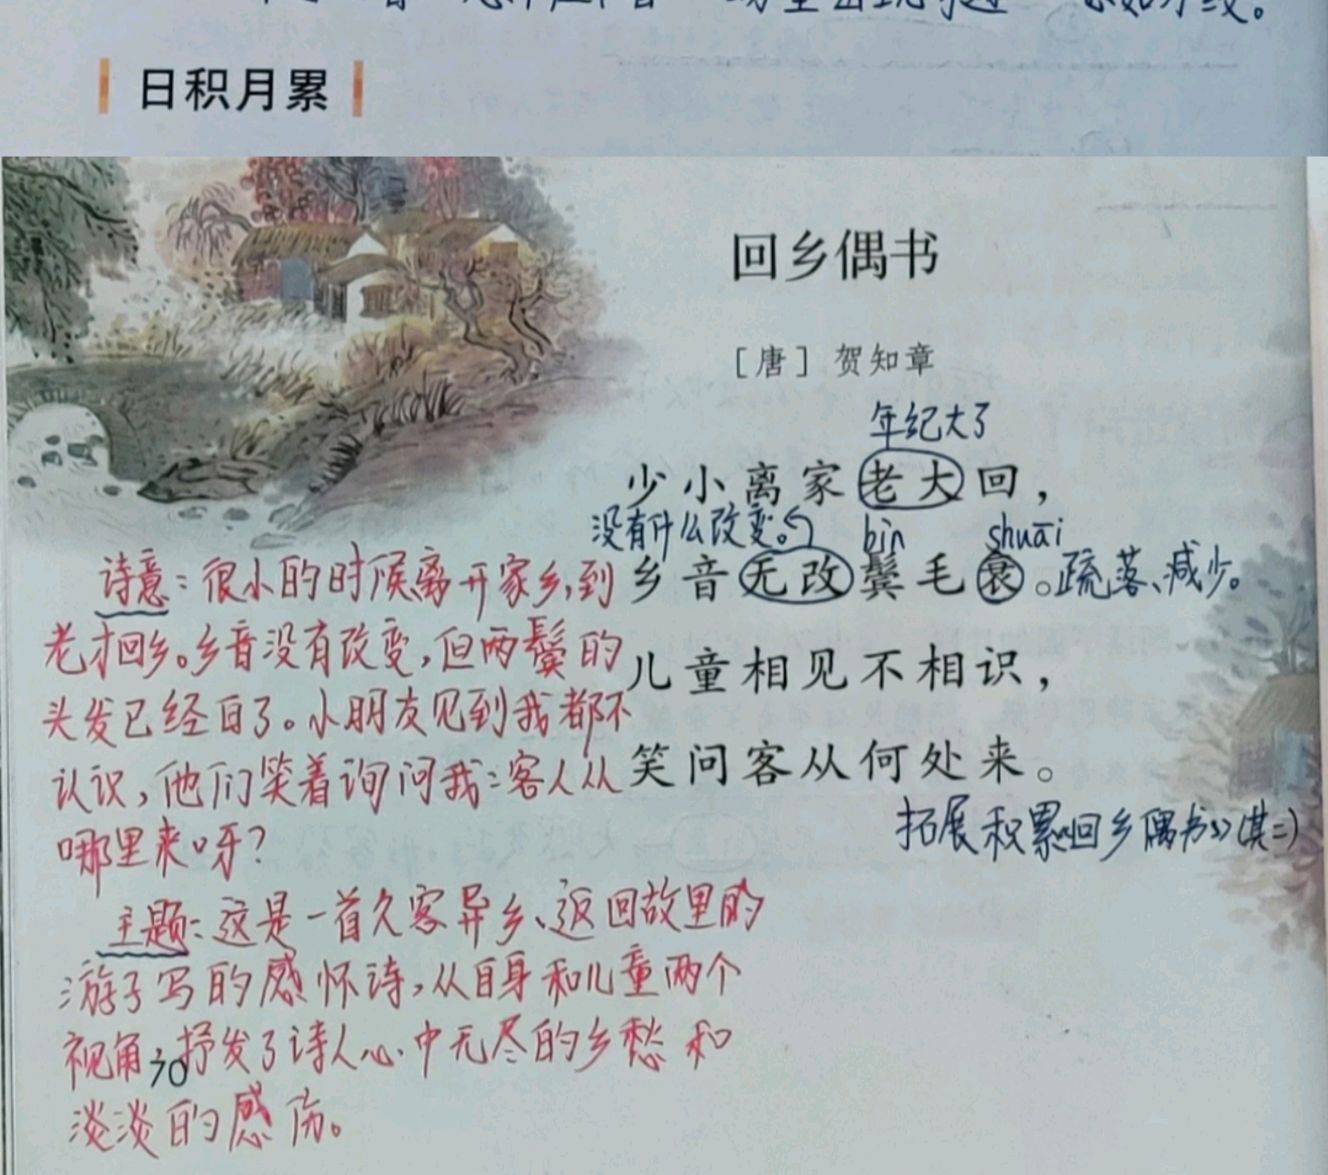 日积月累
回乡偶书
［唐］贺知章
年纪大了
少小离家老大回，
没有什么改变。
bìn
shuāi
乡音无改鬓毛衰。
疏落、减少。
儿童相见不相识，
笑问客从何处来。
拓展积累《回乡偶书》(其二)
诗意：很小的时候离开家乡,到
老才回乡。乡音没有改变,但两鬓的
头发已经白了。小朋友见到我都不
认识,他们笑着询问我:客人从
哪里来呀?
主题:这是一首久客异乡、返回故里的
游子写的感怀诗,从自身和儿童两个
视角,抒发了诗人心中无尽的乡愁和
淡淡的感伤。
70